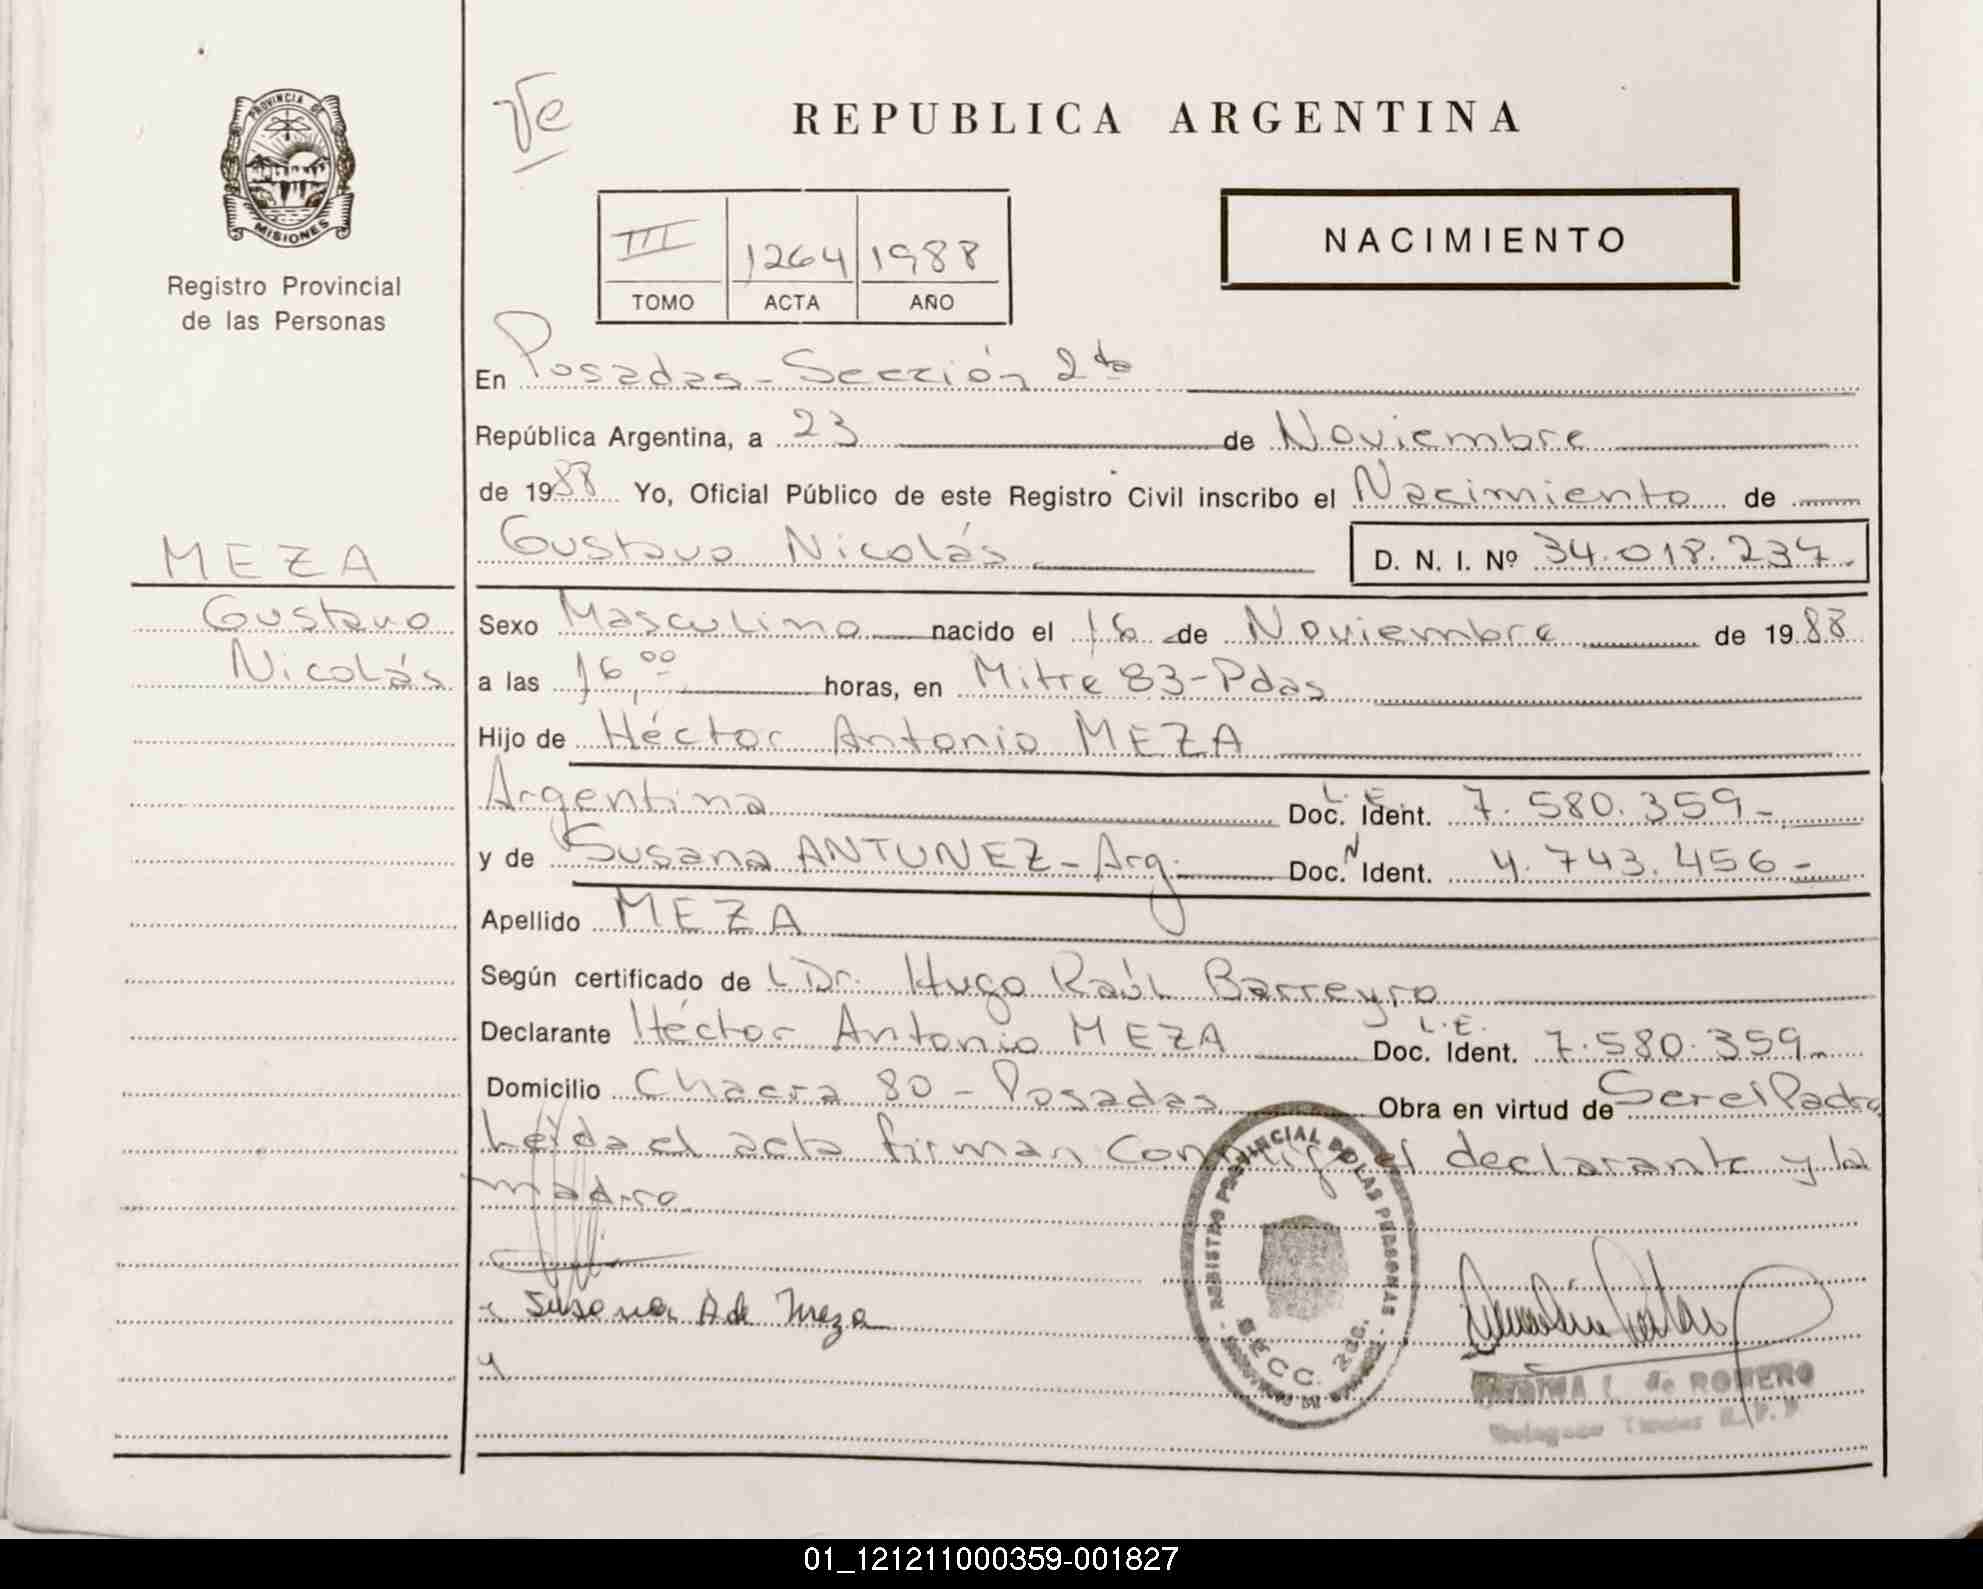 PROVINCIA DE
MISIONES
Registro Provincial
de las Personas
Ve
REPUBLICA ARGENTINA
NACIMIENTO
III 1264 1988
TOMO ACTA AÑO
En Posadas - Sección 2da
República Argentina, a 23 de Noviembre
de 1988 Yo, Oficial Público de este Registro Civil inscribo el Nacimiento de
MEZA
Gustavo Nicolás D. N. I. Nº 34.018.237.
Gustavo
Nicolás
Sexo Masculino nacido el 16 de Noviembre de 1988
a las 16,00 horas, en Mitre 83-Pdas
Hijo de Héctor Antonio MEZA
Argentina Doc. Ident. L.E. 7.580.359-
y de Susana ANTUNEZ - Arg. Doc. N Ident. 4.743.456-
Apellido MEZA
Según certificado de Dr. Hugo Raúl Barreyro
Declarante Héctor Antonio MEZA Doc. Ident. L.E. 7.580.359-
Domicilio Chacra 80 - Posadas Obra en virtud de Ser el Padre
Leída el acta firman conmigo el declarante y la
madre.
Susana A de Meza
REGISTRO PROVINCIAL DE LAS PERSONAS
SECC. 2da.
de ROMERO
01_121211000359-001827